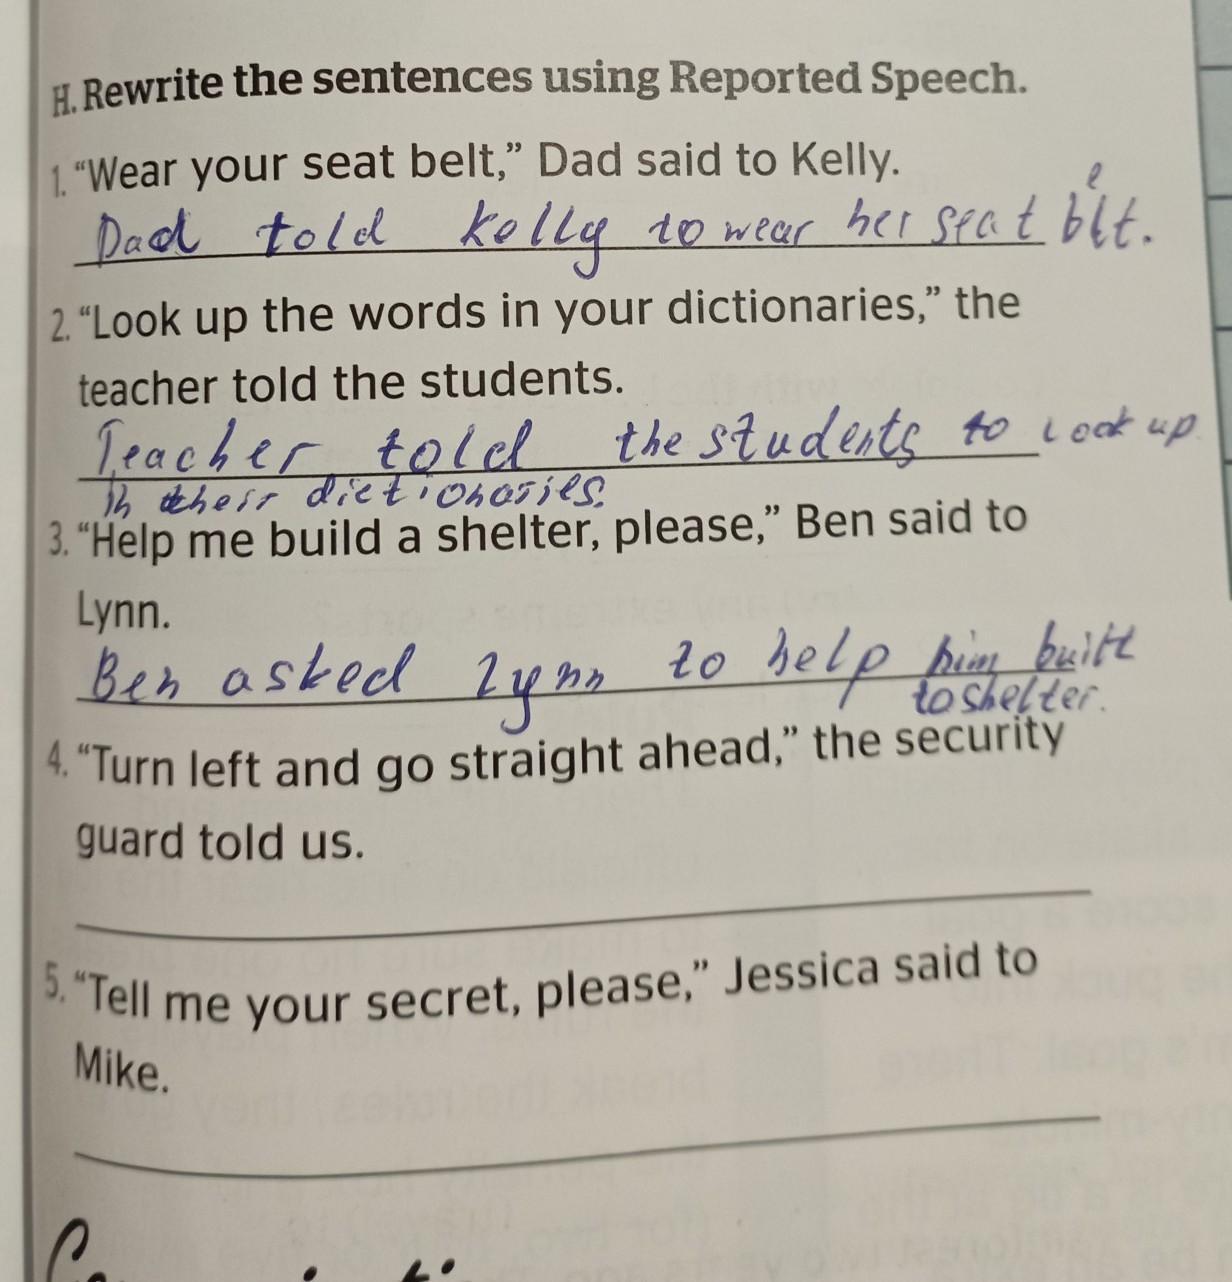 H. Rewrite the sentences using Reported Speech.
1. “Wear your seat belt,” Dad said to Kelly.
Dad told kelly to wear her seat belt.
2. “Look up the words in your dictionaries,” the
teacher told the students.
Teacher told the students to look up
in their dictionaries.
3. “Help me build a shelter, please,” Ben said to
Lynn.
Ben asked Lynn to help him built
to shelter.
4. “Turn left and go straight ahead,” the security
guard told us.
5. “Tell me your secret, please,” Jessica said to
Mike.